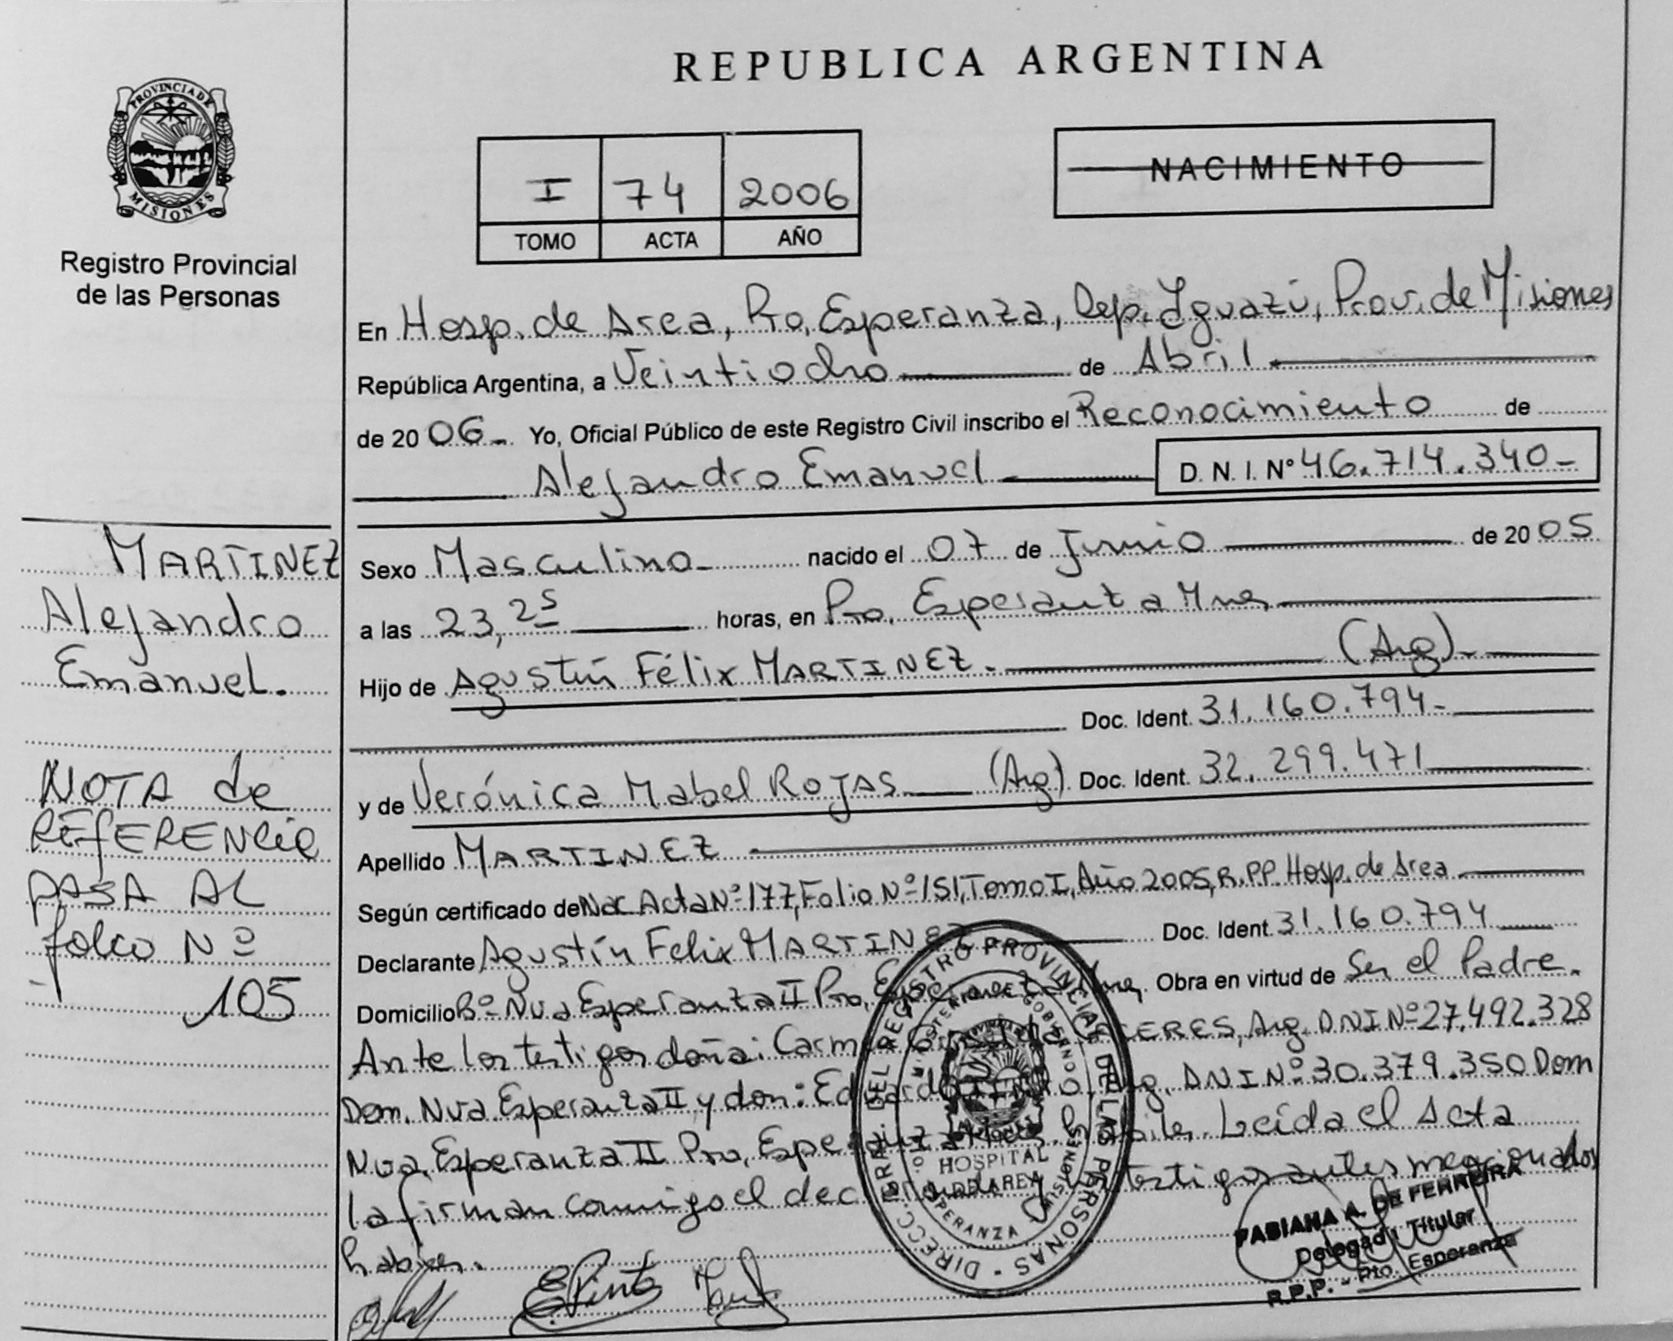 PROVINCIA DE
MISIONES
Registro Provincial
de las Personas
REPUBLICA ARGENTINA
I 74 2006
TOMO ACTA AÑO
NACIMIENTO
En Hosp. de Area, Pto. Esperanza, Dep. Iguazú, Prov. de Misiones
República Argentina, a Veintiocho de Abril
de 2006- Yo, Oficial Público de este Registro Civil inscribo el Reconocimiento de
Alejandro Emanuel D. N. I. N° 46.714.340-
MARTINEZ
Alejandro
Emanuel.
Sexo Masculino nacido el 07 de Junio de 2005
a las 23,25 horas, en Pto. Esperanza Mnes
Hijo de Agustín Félix MARTINEZ. (Arg)
Doc. Ident. 31.160.794-
y de Verónica Mabel ROJAS (Arg) Doc. Ident. 32.299.471
Apellido MARTINEZ
Según certificado de Nac Acta N° 177, Folio N° 151, Tomo I, Año 2005, R.PP. Hosp. de Area
Declarante Agustín Felix MARTINEZ Doc. Ident. 31.160.794
Domicilio B° Nva Esperanza II Pto. Mnes, Obra en virtud de Ser el Padre.
Ante los testigos doña: Carmen CACERES, Arg. DNI N° 27.492.328
Dom. Nva Esperanza II y don: Eduardo PINTO, Arg. DNI N° 30.379.350 Dom
Nva. Esperanza II Pto. Esperanza Mnes. habiles. Leída el Acta
la firman conmigo el declarante y testigos antes mencionados
habiles.
NOTA de
REFERENCIA
PASA AL
folio N°
105
E. Pinto
DIRECC. GRAL. DEL REGISTRO PROVINCIAL DE LAS PERSONAS
MINISTERIO DE GOBIERNO
MISIONES
HOSPITAL
DE AREA
ESPERANZA
FABIANA A. DE FERREIRA
Delegada Titular
R.P.P. - Pto. Esperanza